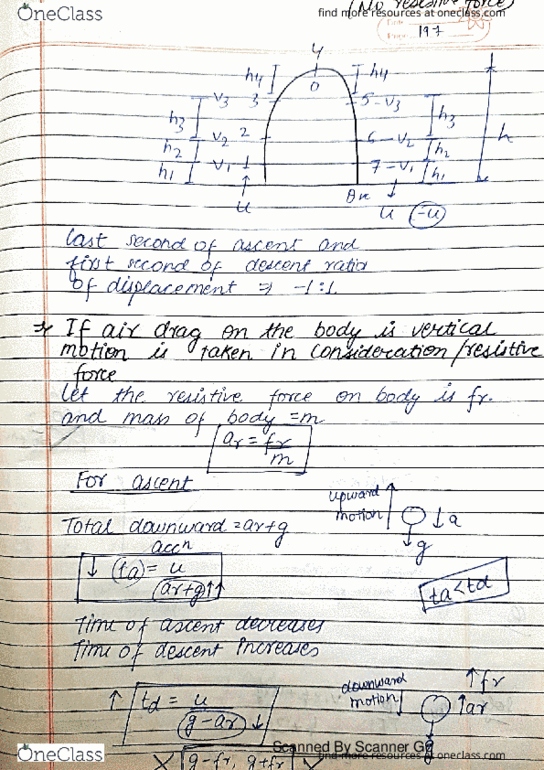 OneClass
(No resistive force)
find more resources at oneclass.com
Date
Page 197
4
h4 h4
0
v3 3 5 -v3
h3 h3
h
v2 2 6 -v2
h2 h2
v1 1 7 -v1
h1 h1
u
u (-u)
last second of ascent and
first second of descent ratio
of displacement ⇒ -1:1
If air drag on the body is vertical
motion is taken in consideration/resistive
force
let the resistive force on body is fr.
and mass of body = m
ar = fr/m
For ascent
upward
motion ↑
↓a
↓
g
Total downward = ar+g
accn
↓ (ta) = u/(ar+g)↑↑
ta<td
Time of ascent decreases
Time of descent increases
downward
motion ↓
↑fr
↑ar
↑ td = u/(g-ar) ↓
g
Scanned By Scanner Go
OneClass
find more resources at oneclass.com
g-fr, g+fr